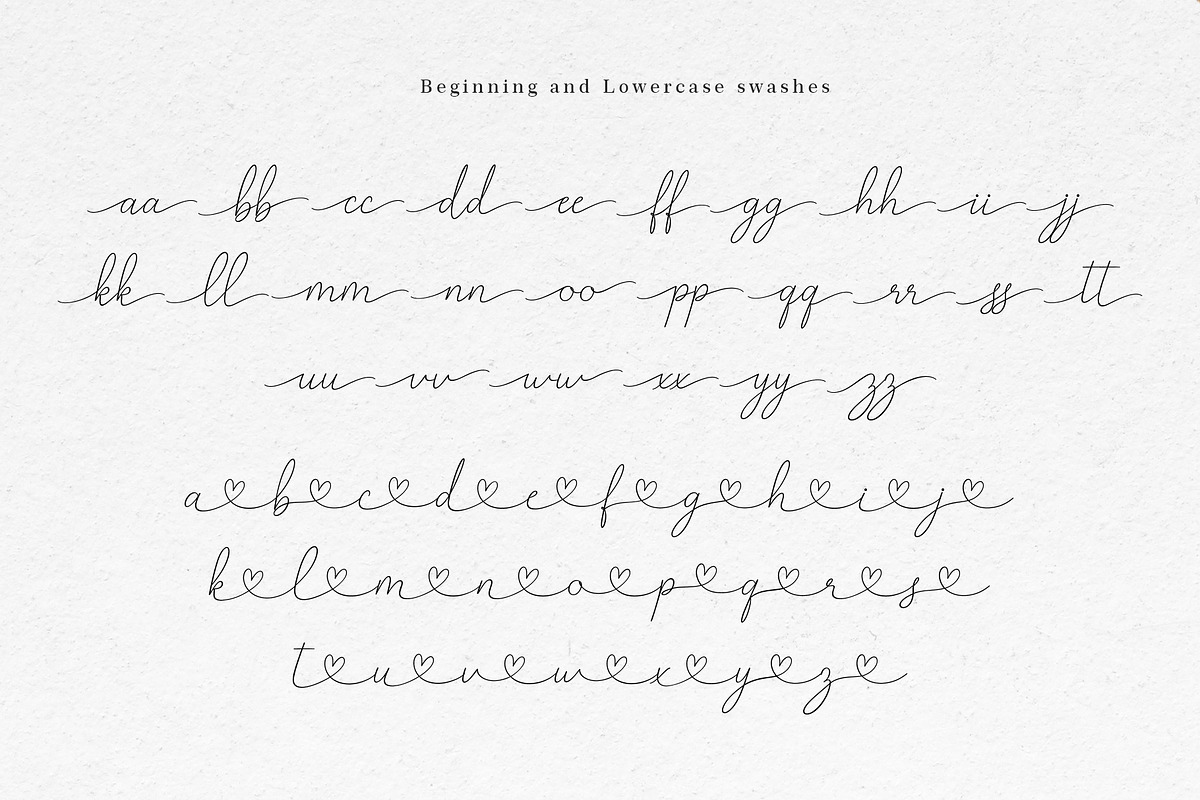 Beginning and Lowercase swashes
aa bb cc dd ee ff gg hh ii jj
kk ll mm nn oo pp qq rr ss tt
uu vv ww xx yy zz
a♡b♡c♡d♡e♡f♡g♡h♡i♡j♡
k♡l♡m♡n♡o♡p♡q♡r♡s♡
t♡u♡v♡w♡x♡y♡z♡